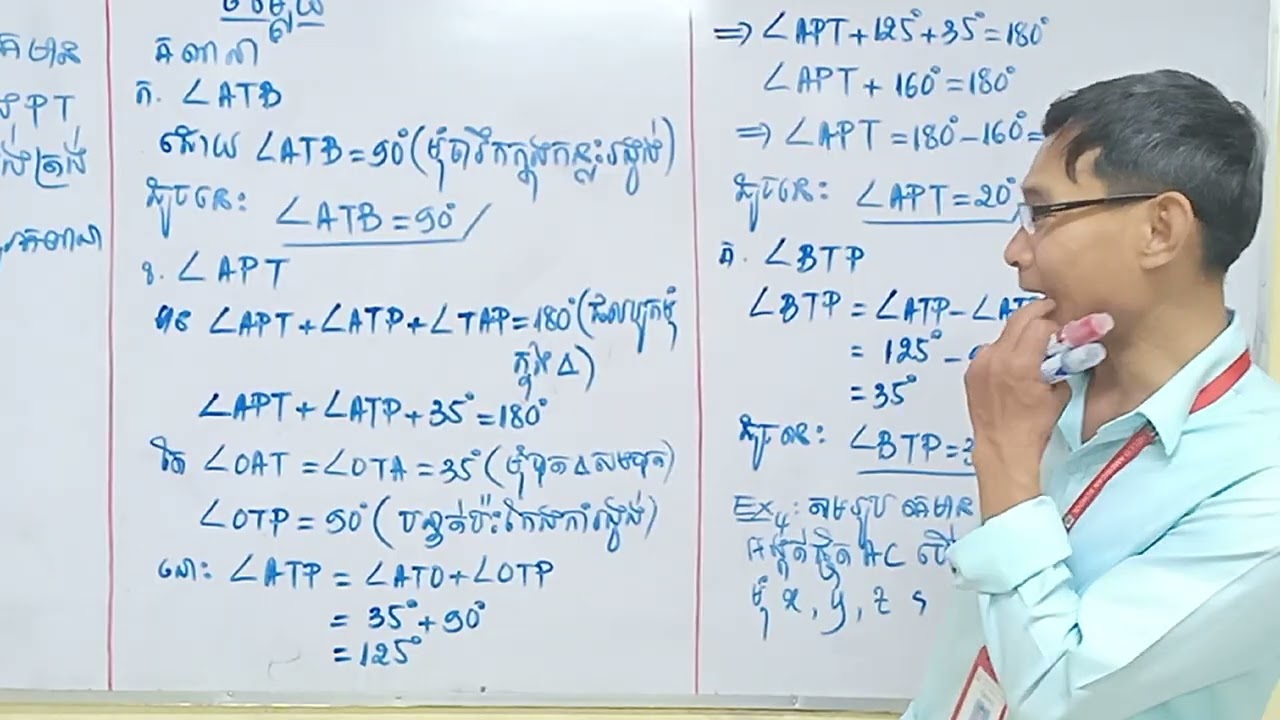 គេមាន
PT
គណនា
ក. ∠ATB
ដោយ ∠ATB = 90° (មុំចារឹកក្នុងកន្លះរង្វង់)
ដូចនេះ ∠ATB = 90°
ខ. ∠APT
មាន ∠APT + ∠ATP + ∠TAP = 180° (ផលបូកមុំ
ក្នុង Δ)
∠APT + ∠ATP + 35° = 180°
តែ ∠OAT = ∠OTA = 35° (មុំបាត Δ សមបាត)
∠OTP = 90° (បន្ទាត់ប៉ះកែងកាំរង្វង់)
នោះ ∠ATP = ∠ATO + ∠OTP
= 35° + 90°
= 125°
⇒ ∠APT + 125° + 35° = 180°
∠APT + 160° = 180°
⇒ ∠APT = 180° - 160° =
ដូចនេះ ∠APT = 20°
គ. ∠BTP
∠BTP = ∠ATP - ∠AT
= 125° -
= 35°
ដូចនេះ ∠BTP = 3
Ex4: តាមរូប គេមាន
អង្កត់ផ្ចិត AC
មុំ x, y, z